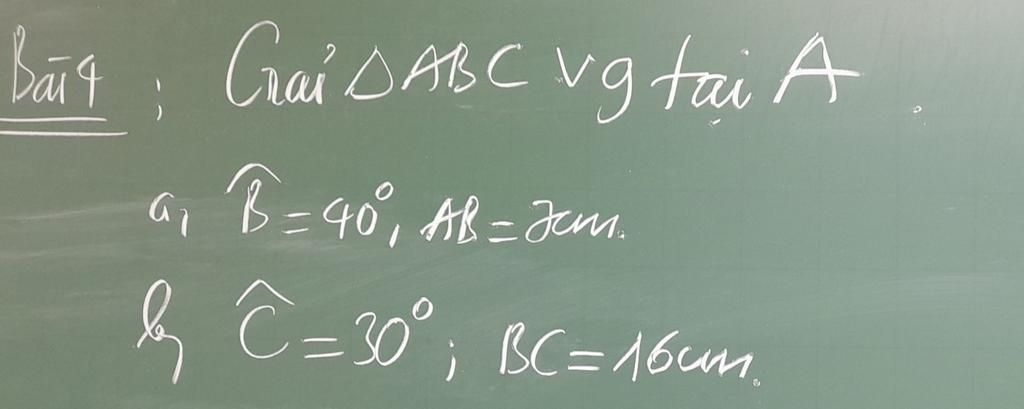 Bài 4 : Giải △ABC vg tại A.
a, B̂ = 40°, AB = 7cm.
b, Ĉ = 30°; BC = 16cm.